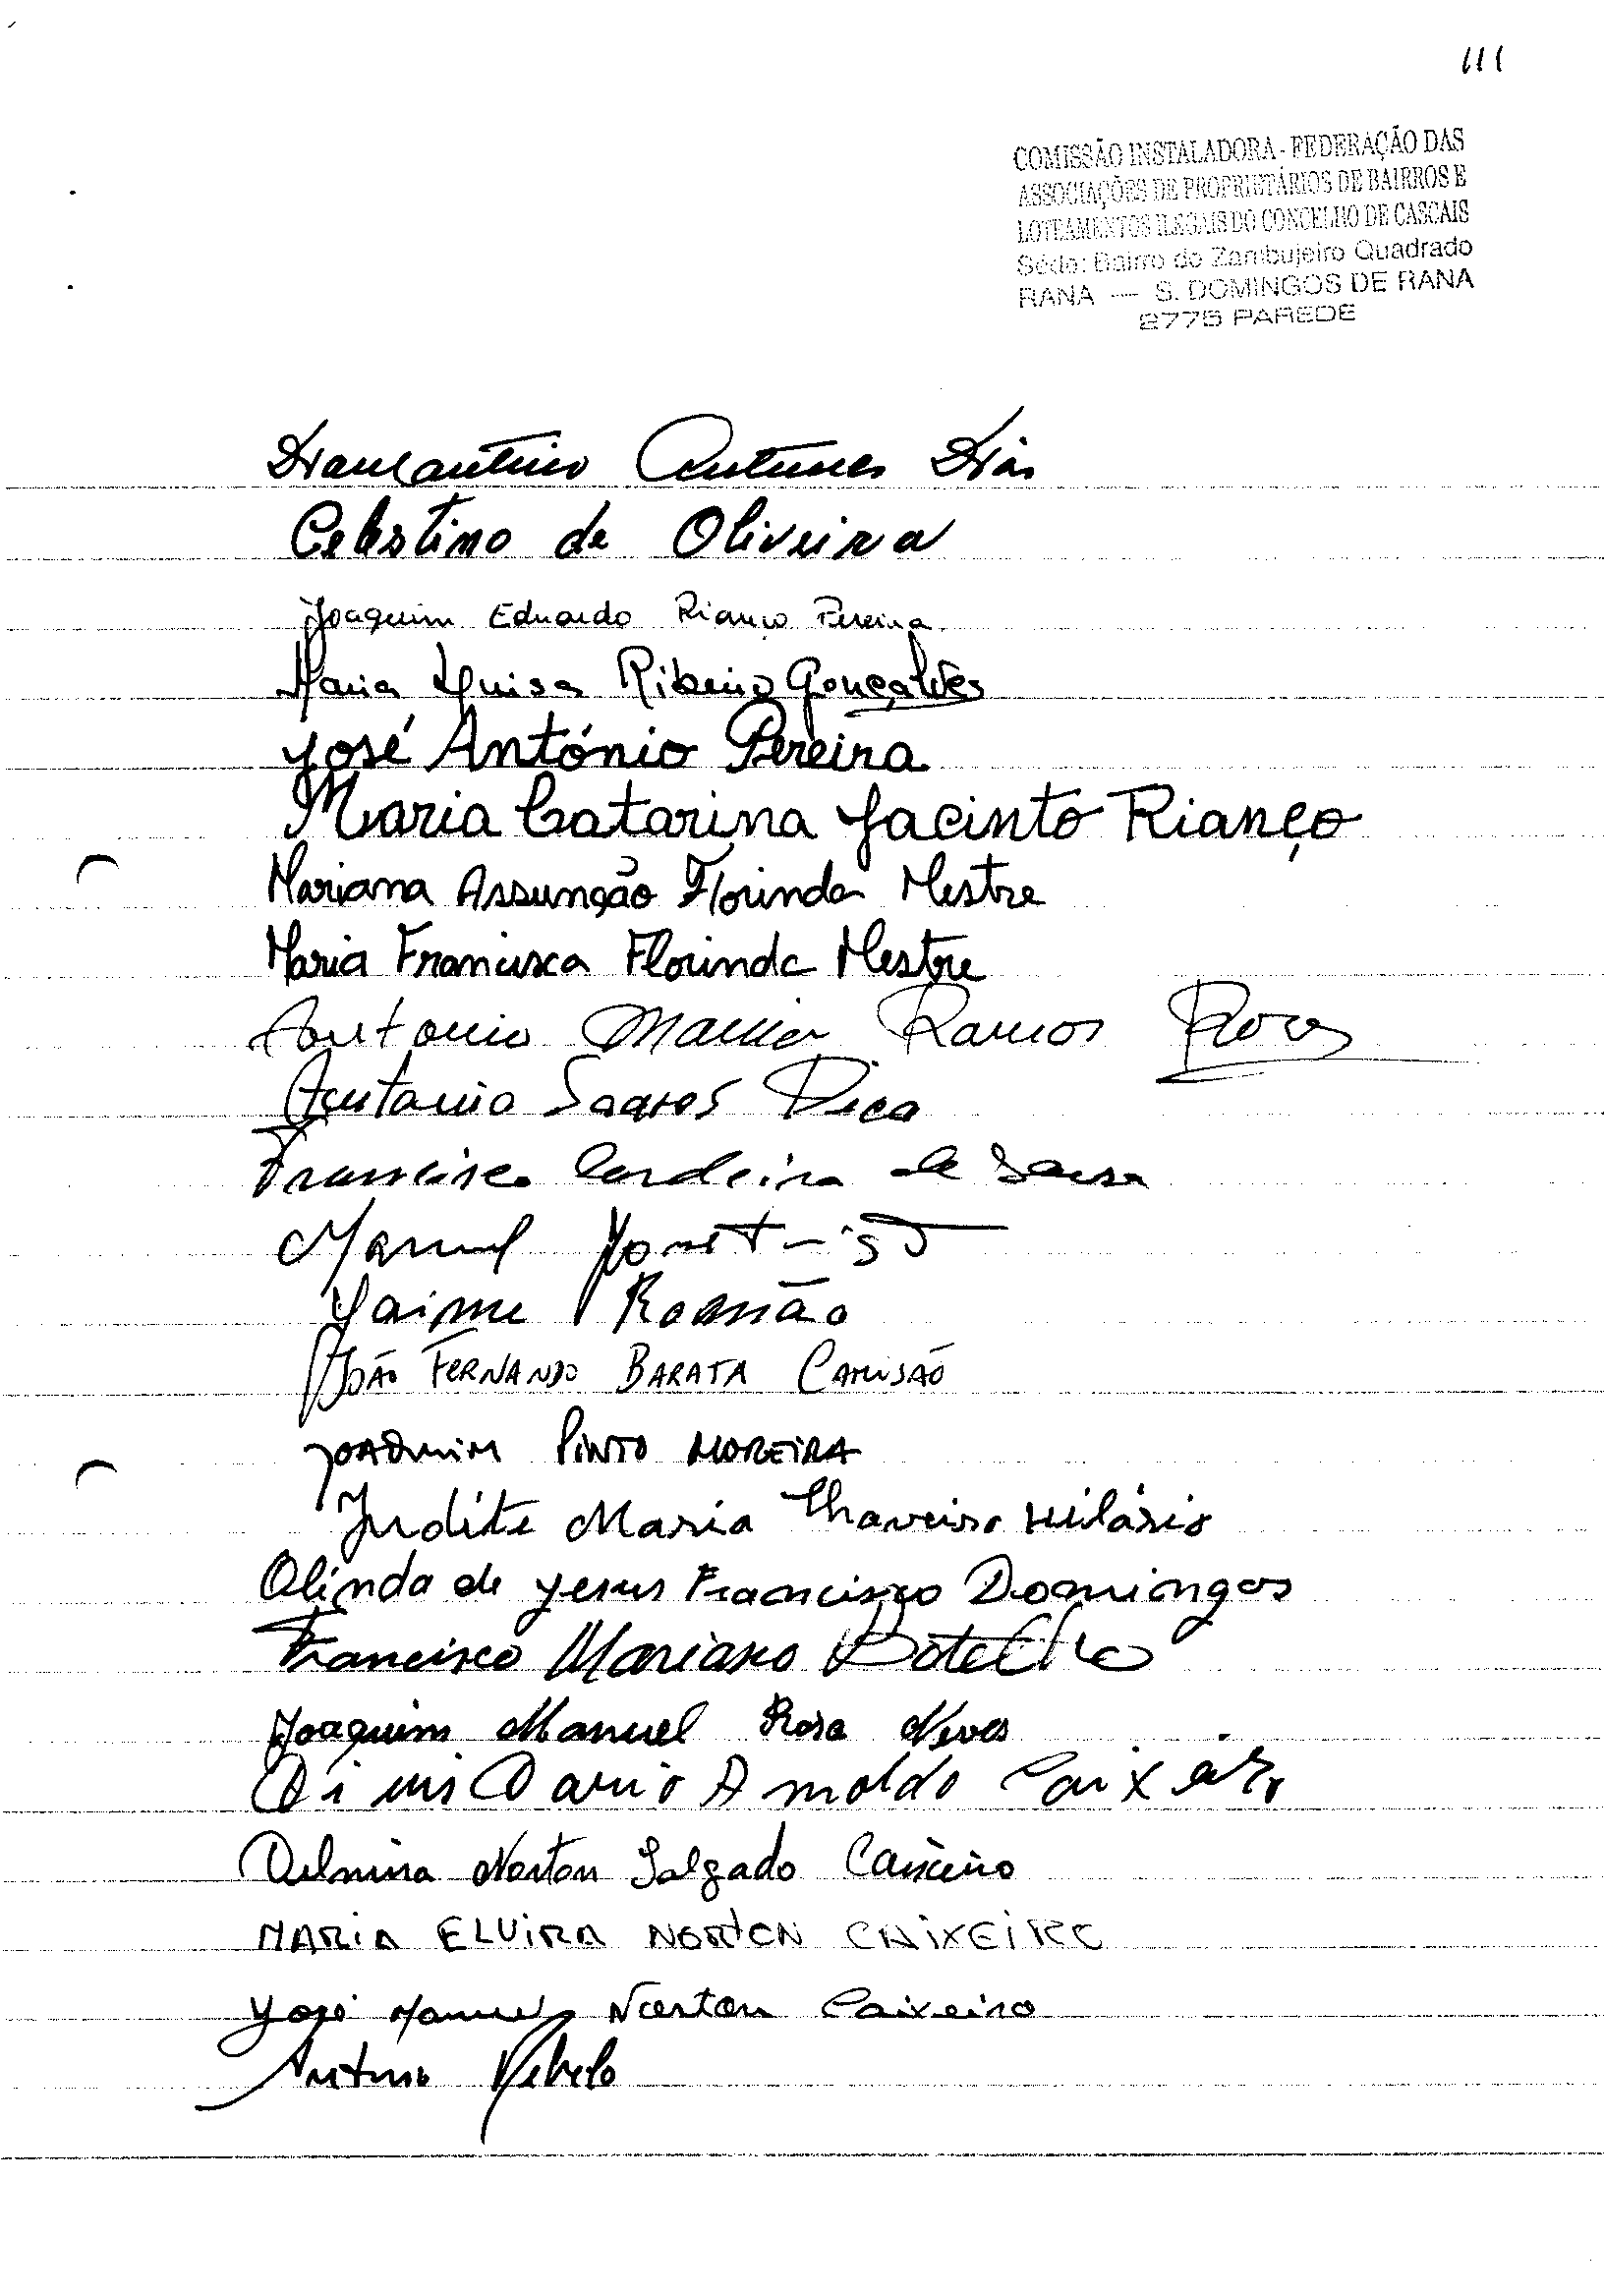 111
COMISSÃO INSTALADORA - FEDERAÇÃO DAS
ASSOCIAÇÕES DE PROPRIETÁRIOS DE BAIRROS E
LOTEAMENTOS ILEGAIS DO CONCELHO DE CASCAIS
Séde: Bairro do Zambujeiro Quadrado
RANA — S. DOMINGOS DE RANA
2775 PAREDE
Diamantino Antunes Dias
Celestino de Oliveira
Joaquim Eduardo Rianço Pereira
Maria Luisa Ribeiro Gonçalves
José António Pereira
Maria Catarina Jacinto Rianço
Mariana Assunção Florinda Mestre
Maria Francisca Florinda Mestre
Antonio Maria Ramos
Antonio Soares
Francisco Cordeiro de Sousa
Manuel
Jaime Romão
JOÃO FERNANDO BARATA CAMISÃO
JOAQUIM PINTO MOREIRA
Judite Maria Chaveiro Hilário
Olinda de Jesus Francisco Domingos
Francisco Mariano Botelho
Joaquim Manuel Rosa Neves
Dario Arnoldo Caixeiro
Delmina Norton Salgado Caixeiro
MARIA ELVIRA NORTON CAIXEIRO
José Manuel Norton Caixeiro
Rebelo